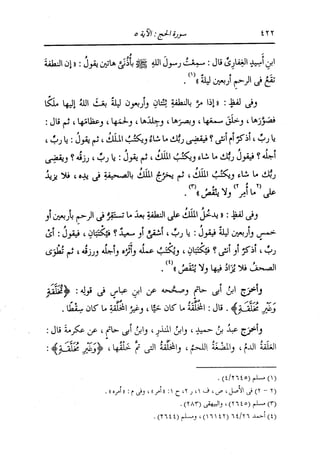 ٤٢٢ سورة الحج : الآية ٥
ابنِ أَسِيدٍ الغِفارىِّ قال : سمِعْتُ رسولَ اللهِ ﷺ بأُذُنَىَّ هاتين يقولُ : « إن النطفةَ
تقعُ فى الرحمِ أربعين ليلةً »(١) .
وفى لفظٍ : « إذا مرَّ بالنطفةِ ثِنْتان وأربعون ليلةً بعَث اللهُ إليها ملَكًا
فصوَّرها ، وخلَق سمعَها ، وبصرَها ، وجلدَها ، ولحمَها ، وعظامَها ، ثم قال :
يا ربِّ ، أذكرٌ أم أنثى ؟ فيقضِى ربُّك ما شاء ويكتُبُ الملَكُ ، ثم يقولُ : يا ربِّ ،
أجلُه ؟ فيقولُ ربُّك ما شاء ويكتُبُ الملَكُ ، ثم يقولُ : يا ربِّ ، رزقُه ؟ ويقضِى
ربُّك ما شاء ويكتُبُ الملَكُ ، ثم يخرُجُ الملَكُ بالصحيفةِ فى يدِه ، فلا يزيدُ
على (٢ما أُمِر٢) ولا يَنْقُصُ »(٣) .
وفى لفظٍ : « يدخُلُ الملَكُ على النطفةِ بعدَ ما تستقِرُّ فى الرحمِ بأربعين أو
خمسٍ وأربعين ليلةً فيقولُ : يا ربِّ ، أشقىٌّ أو سعيدٌ ؟ فيُكتَبان ، فيقولُ : أىْ
ربِّ ، أذكرٌ أو أنثى ؟ فيُكتَبان ، ويُكتَبُ عملُه وأثرُه وأجلُه ورزقُه ، ثم تُطوَى
الصحفُ فلا يُزادُ فيها ولا يُنقَصُ »(٤) .
وأخرَج ابنُ أبى حاتمٍ وصحَّحه عن ابنِ عباسٍ فى قولِه : ﴿ مُّخَلَّقَةٍ
وَغَيْرِ مُخَلَّقَةٍ ﴾ . قال : المخلَّقةُ ما كان حيًّا ، وغيرُ المخلَّقةِ ما كان سِقْطًا .
وأخرَج عبدُ بنُ حميدٍ ، وابنُ المنذرِ ، وابنُ أبى حاتمٍ ، عن عكرمةَ قال :
العلَقةُ الدمُ ، والمضغةُ اللحمُ ، والمخلَّقةُ التى تمَّ خلقُها ، ﴿ وَغَيْرِ مُخَلَّقَةٍ ﴾ :
(١) مسلم (٤/٢٦٤٥) .
(٢ - ٢) فى الأصل ، ص ، ف ١ ، ر ٢ ، ح ١ : « أمر » ، وفى م : « أمره » .
(٣) مسلم (٢٦٤٥) ، والبيهقى (٢٨٣) .
(٤) أحمد ٦٤/٢٦ (١٦١٤٢) ، ومسلم (٢٦٤٤) .